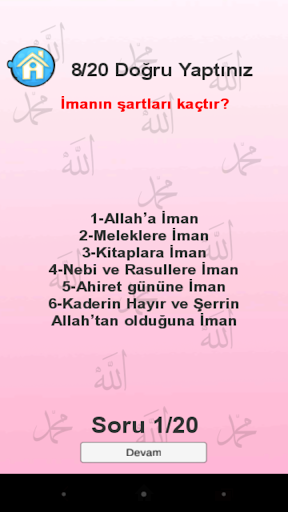 8/20 Doğru Yaptınız
İmanın şartları kaçtır?
1-Allah'a İman
2-Meleklere İman
3-Kitaplara İman
4-Nebi ve Rasullere İman
5-Ahiret gününe İman
6-Kaderin Hayır ve Şerrin
Allah'tan olduğuna İman
Soru 1/20
Devam